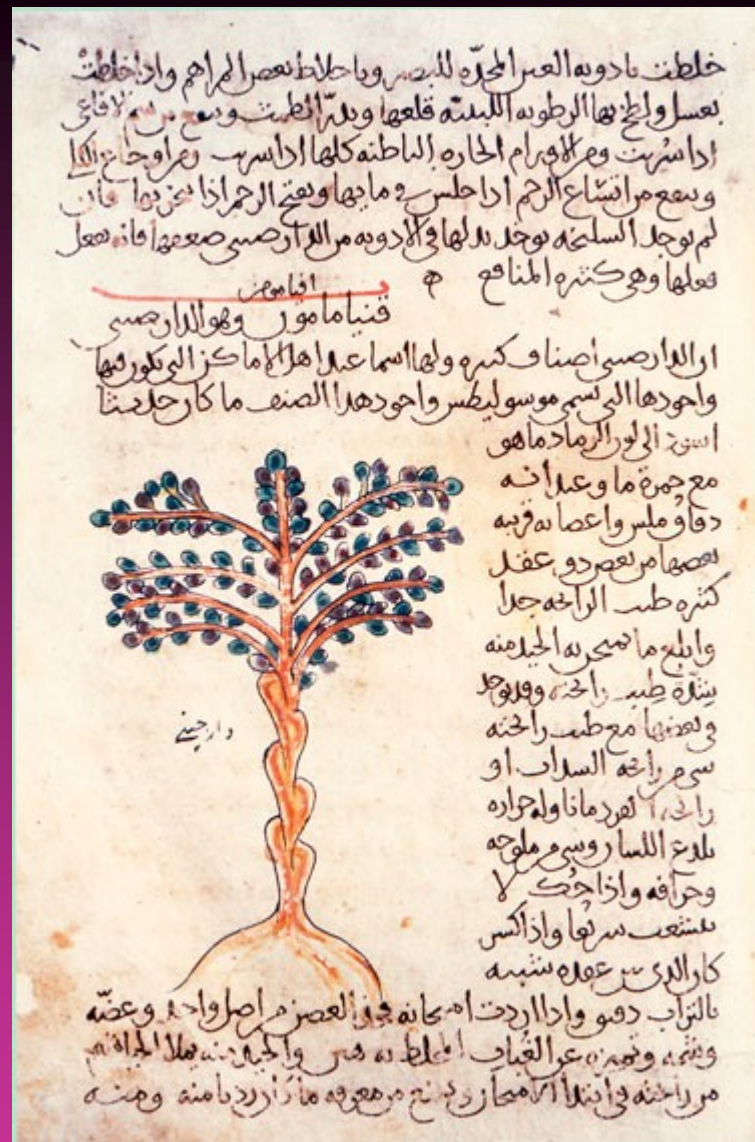 خلطت بادويه العين المحدّه للبصر وباخلاط بعض المراهم واذا خلطت
بعسل ولطخ بها الرطوبه اللبنيّه قلعها ويدرّ الطمث وينفع من سم الافاعى
اذا شربت ومن الاورام الحاره الباطنه كلها اذا شربت ومن اوجاع الكلى
وينفع من اتساع الرحم اذا جلس فى مايها ويفتح الرحم اذا بخر بها فان
لم يوجد السليخه يوخذ بدلها فى الادويه من الدارصينى ضعفها فانه يفعل
فعلها وهى كثيره المنافع
قنيامامون وهو الدارصينى
ان الدارصينى اصناف كثيره ولها اسما عند اهل الاماكن التى تكون فيها
واجودها التى تسمى موسوليطس واجود هذا الصنف ما كان حديثا
اسود الى لون الرماد ما هو
مع حمرة ما وعيدانه
دقاق ملس واغصانه قريبه
بعضها من بعض ذو عقد
كثيره طيب الرائحه جدا
وابلغ ما يمتحن به الجيد منه
بشدّة طيب رائحته وقد يوجد
فى بعضها مع طيب رائحته
شى من رائحه السذاب او
رائحه القردمانا وله حراره
يلذع اللسان وشى من ملوحه
وحرافه واذا حُكّ لا
يتشعب سريعا واذا كسر
كان الذى بين عقده شبيه
بالتراب دقيق واذا اردت امتحانه فخذ الغصن من اصل واحد
من رائحته فى ابتدا الامتحان ويمنع من معرفه ما كان ردىا منه ومنه
دارچينى